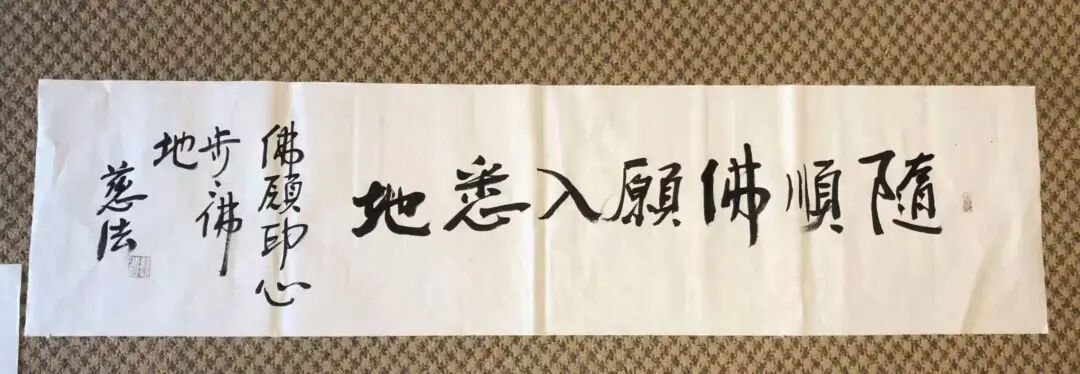 隨順佛願入悉地
佛願印心
步々佛
地
慈法